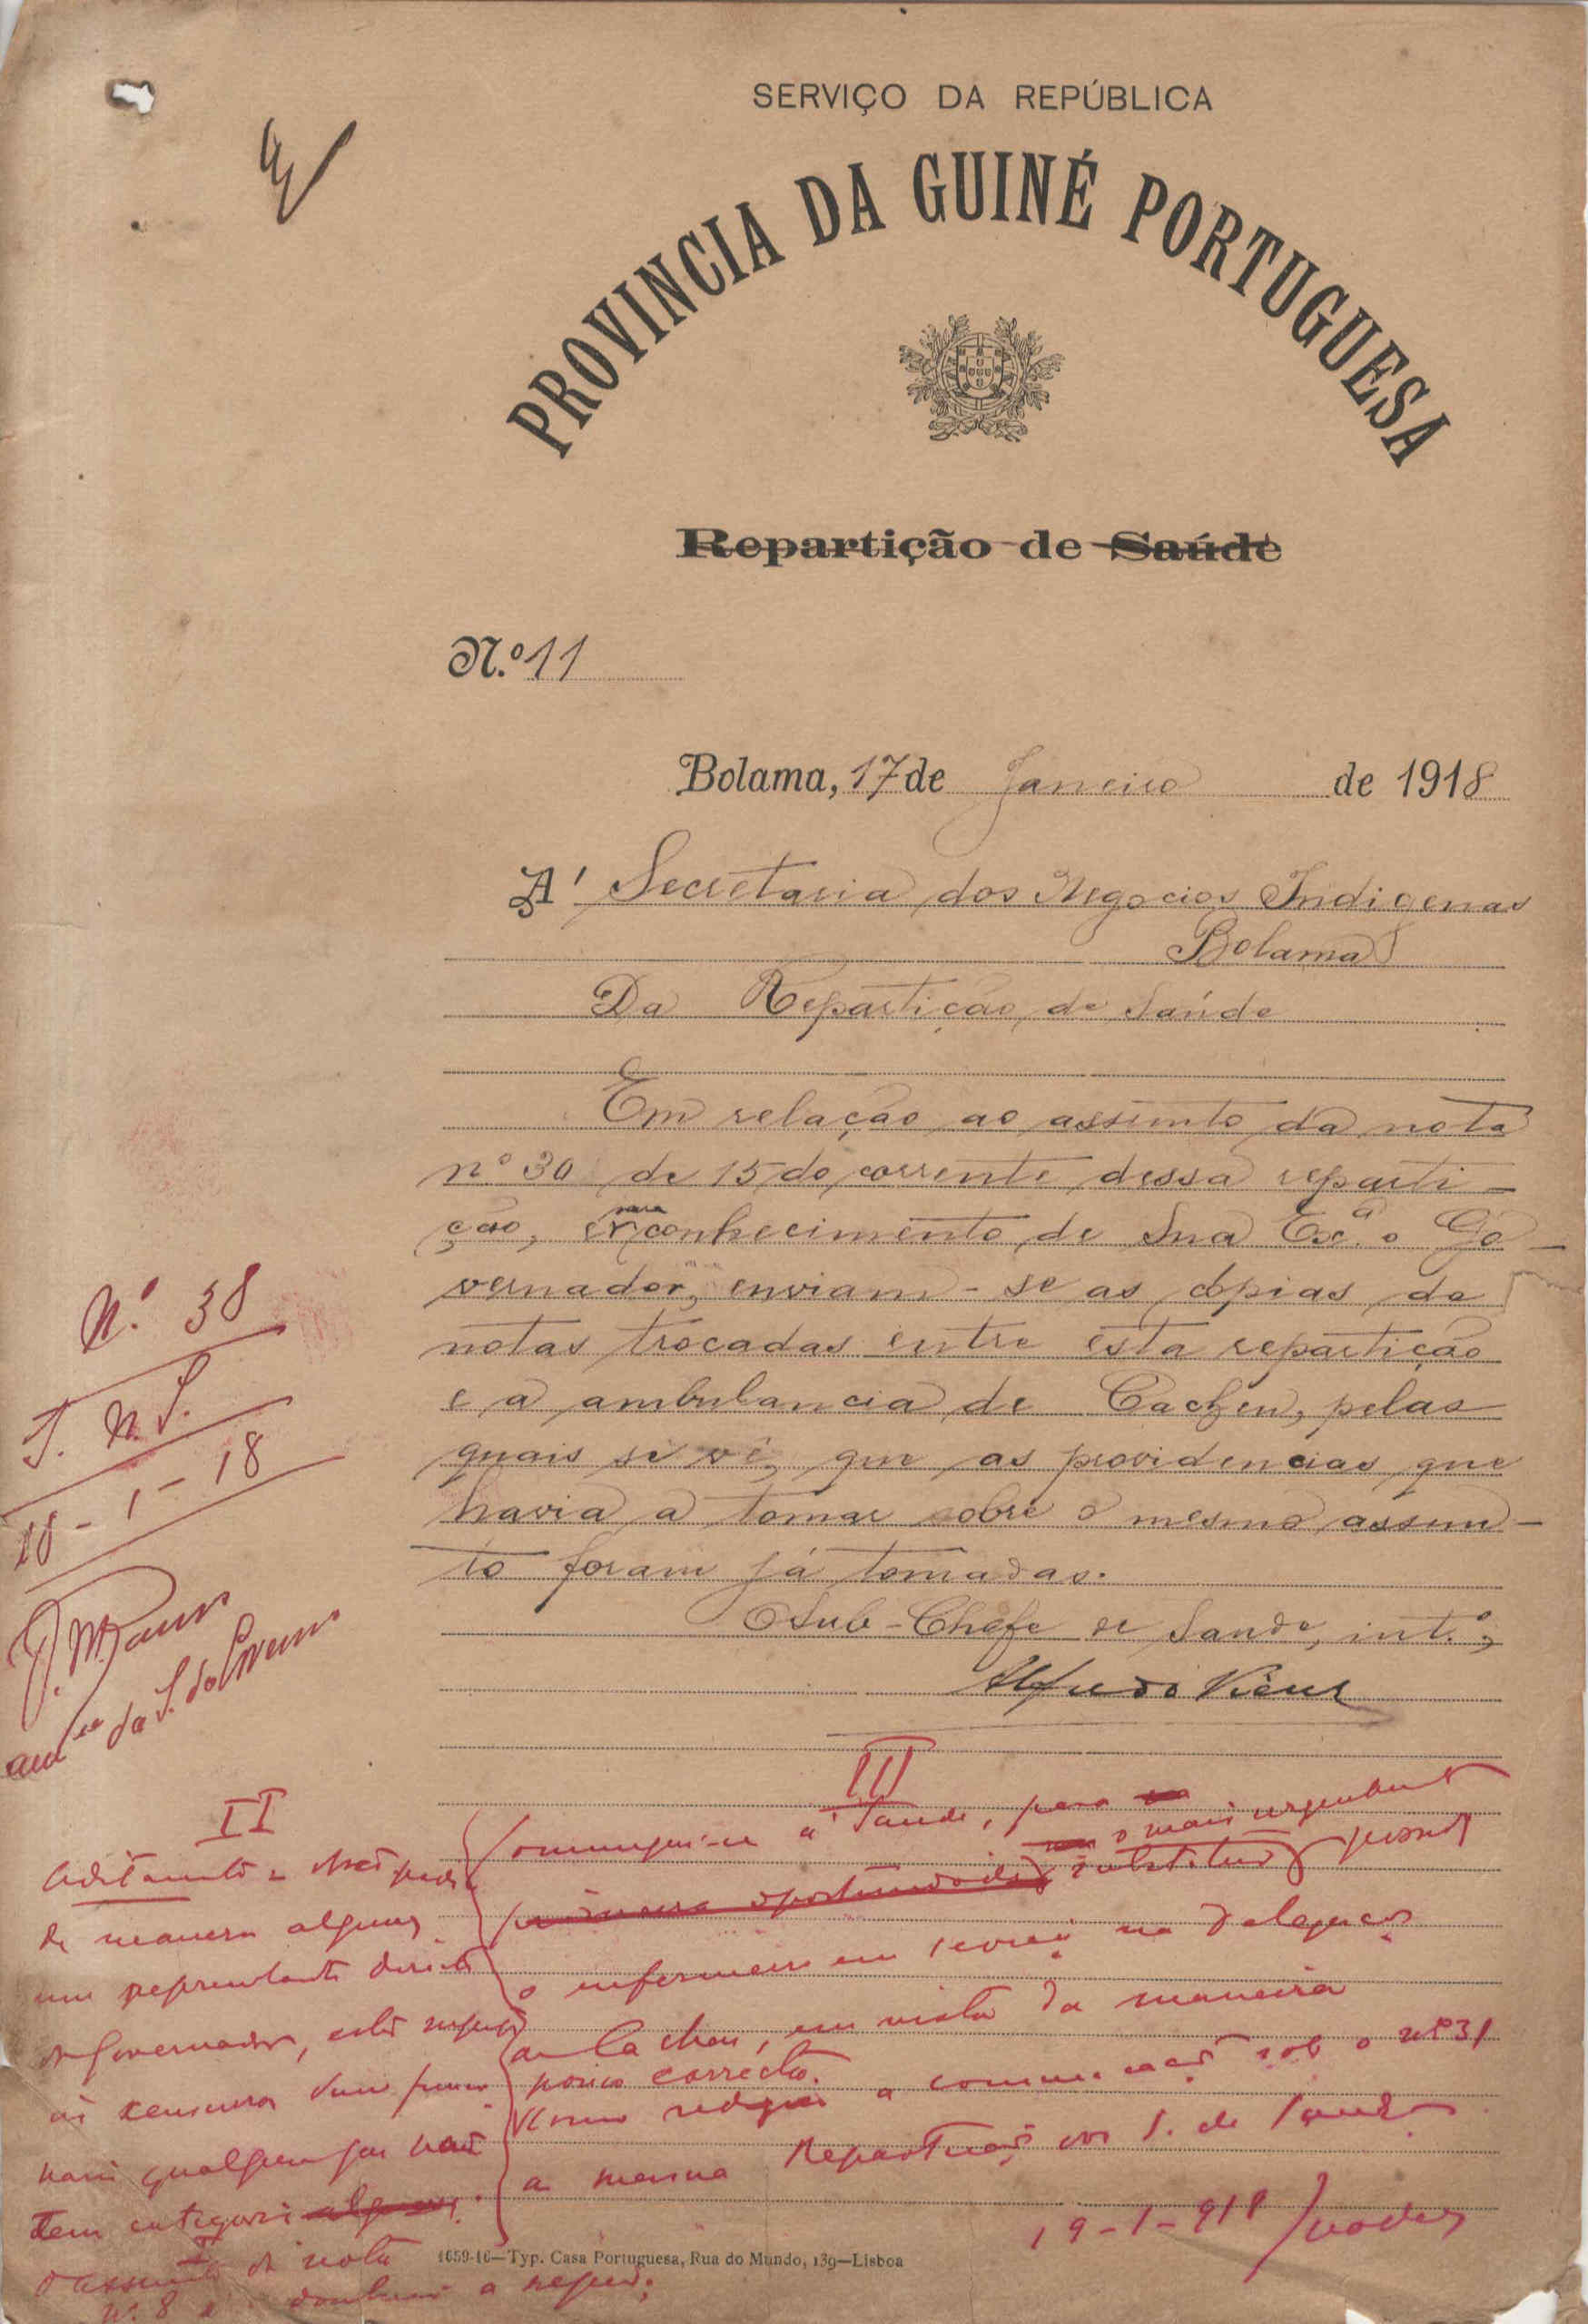 SERVIÇO DA REPÚBLICA
PROVINCIA DA GUINÉ PORTUGUESA
Repartição de Saúde
N.º 11
Bolama, 17 de Janeiro de 1918
A' Secretaria dos Negocios Indigenas
Bolama
Da Repartição de Saúde
Em relação ao assunto da nota
nº 30 de 15 do corrente dessa reparti-
ção, para conhecimento de Sua Exª o Go-
vernador, enviam-se as cópias de
notas trocadas entre esta repartição
e a ambulancia de Cacheu, pelas
quais se vê, que as providencias que
havia a tomar sobre o mesmo assun-
to foram já tomadas.
O Sub-Chefe de Saude, intº,
Alfredo Vieira
N.º 38
S. N. I.
18-1-18
da S. do Governo
II
Aditamento = Não pode
de maneira alguma
um representante directo
do Governador, estar sujeito
ás censuras dum funcio
nario qualquer que não
tem categoria alguma.
I
O assunto da nota
Nº 8 é
III
Comunique-se á Saude, para o mais urgentemente
primeira oportunidade substituir
o enfermeiro em serviço na Delegação
de Cacheu, em vista da maneira
pouco correcta
como redigiu a comunicação sob o nº 31
a mesma Repartição do S. de Saude
19-1-918
1659-16—Typ. Casa Portuguesa, Rua do Mundo, 139—Lisboa